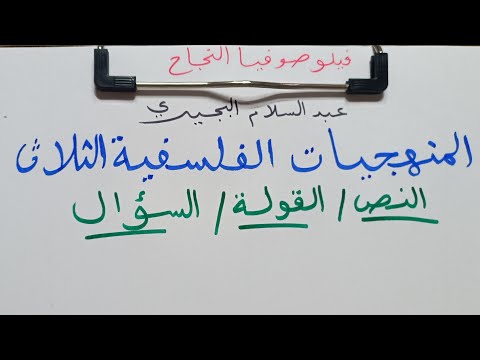 فيلوصوفيا النجاح
عبد السلام البجيري
المنهجيات الفلسفية الثلاث
النص / القولة / السؤال